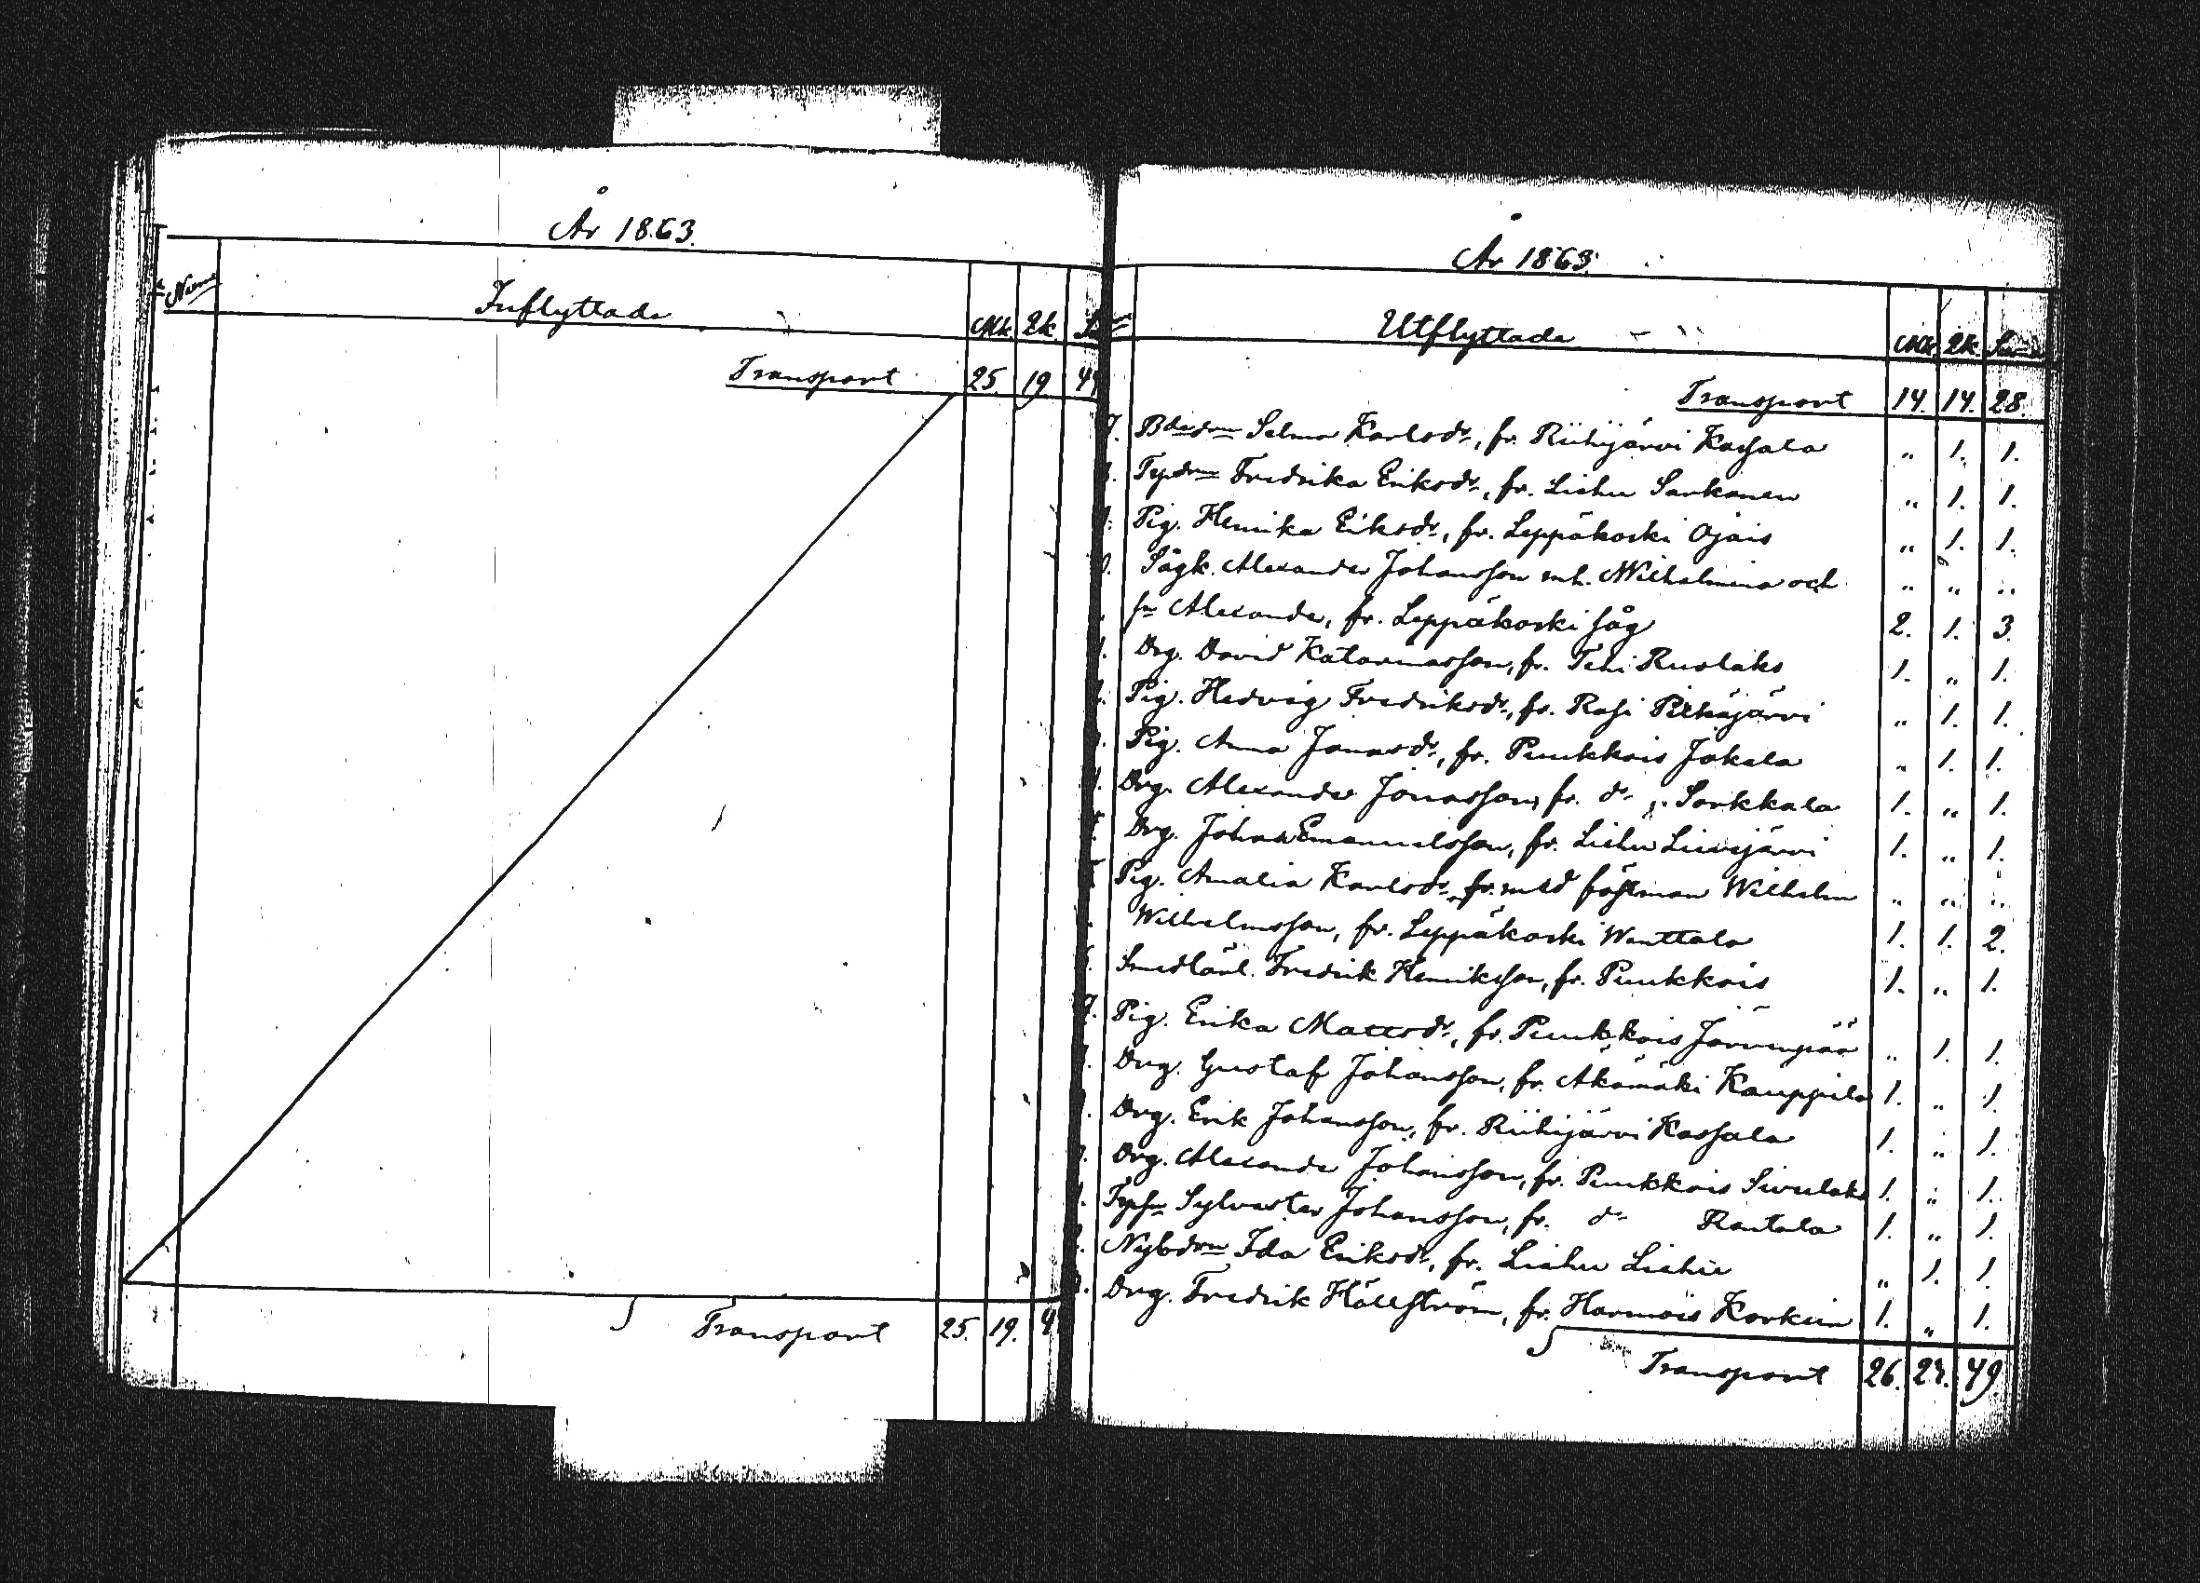 År 1863.
Num
Inflyttade
Mk. Qk.
Transport 25. 19. 44
Transport 25. 19. 4
År 1863.
Utflyttade
Mk. Qk. Sum
Transport 14. 14. 28.
7. Bdedrn Selma Karlsdr, fr. Riihijärvi Kassala „ 1. 1.
Tpdrn Fredrika Eriksdr, fr. Liehu Sarkanen „ 1. 1.
Pig. Henrika Eriksdr, fr. Leppäkoski Ojais „ 1. 1.
Sågk. Alexander Johansson mh. Wilhelmina och „ „ „
sn Alexander, fr. Leppäkoski såg 2. 1. 3.
Drg. David Katarinasson, fr. Tehi Ruolaks 1. „ 1.
Pig. Hedvig Fredriksdr, fr. Rasi Pitkäjärvi „ 1. 1.
Pig. Anna Jonasdr, fr. Puukkois Jokela „ 1. 1.
Drg. Alexander Jonasson, fr. do „ Sarkkala 1. „ 1.
Drg. Johan Emanuelsson, fr. Liehu Liivijärvi 1. „ 1.
Pig. Amalia Karlsdr fr. med fästman Wilhelm „ „ „
Wilhelmsson, fr. Leppäkoski Wanttala 1. 1. 2.
Smedlärl. Fredrik Henriksson, fr. Puukkois 1. „ 1.
7. Pig. Erika Mattsdr, fr. Puukkois Järvenpää „ 1. 1.
Drg. Gustaf Johansson, fr. Äkämäki Kauppila 1. „ 1.
Drg. Erik Johansson, fr. Riihijärvi Kassala 1. „ 1.
Drg. Alexander Johansson, fr. Puukkois Sivulaks 1. „ 1.
Tpsn Sylvester Johansson, fr. do Rantala 1. „ 1.
Nybdrn Ida Eriksdr, fr. Liehu Liehu „ 1. 1.
Drg. Fredrik Hällström, fr. Harmois Korkein 1. „ 1.
Transport 26. 23. 49